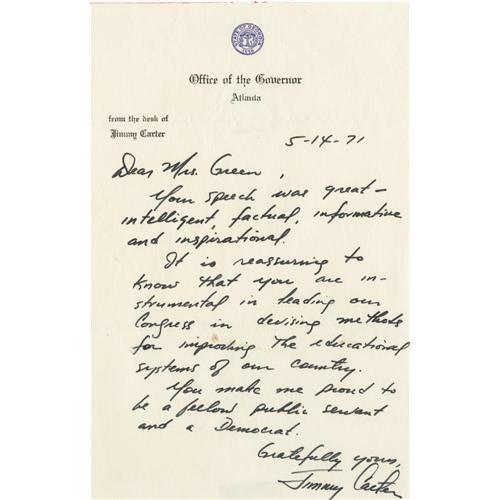 STATE OF GEORGIA
1776
Office of the Governor
Atlanta
from the desk of
Jimmy Carter
5-14-71
Dear Mrs. Green,
Your speech was great –
intelligent, factual, informative
and inspirational.
It is reassuring to
know that you are in-
strumental in leading our
Congress in devising methods
for improving the educational
systems of our country.
You make me proud to
be a fellow public servant
and a Democrat.
Gratefully yours,
Jimmy Carter